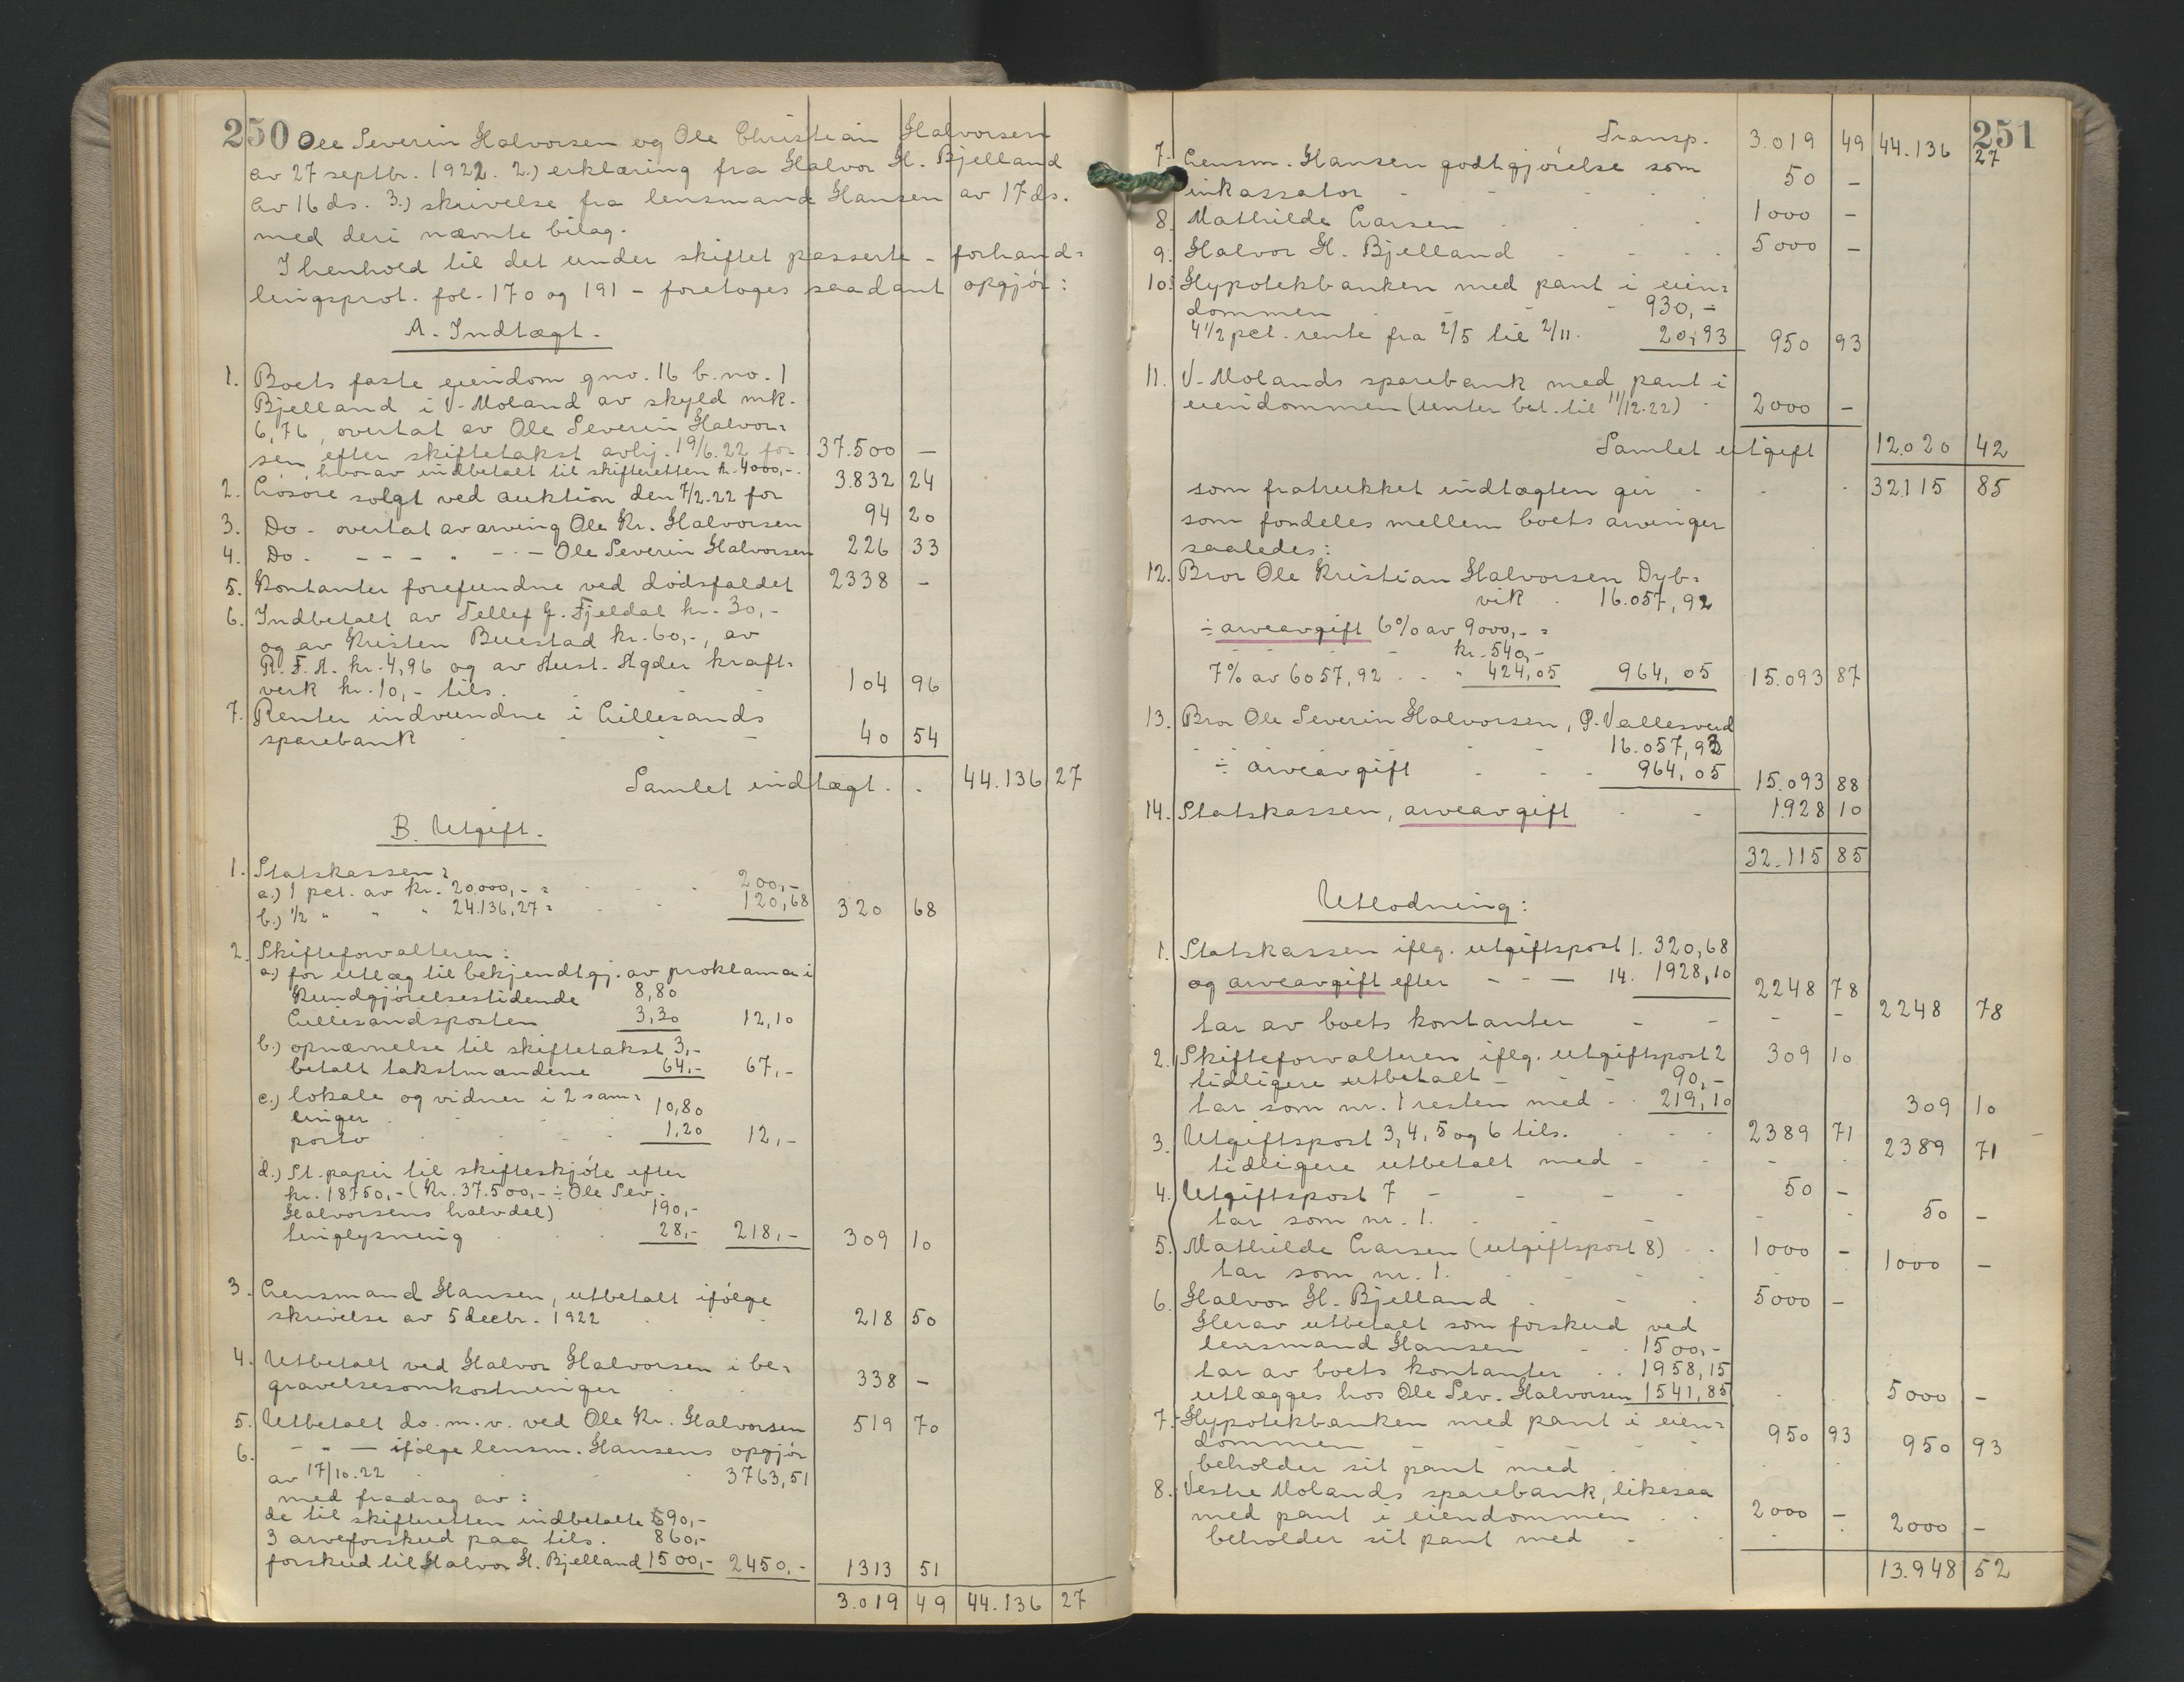 250 Ole Severin Halvorsen og Ole Christian Halvorsen
av 27 septbr. 1922. 2.) erklæring fra Halvor H. Bjelland
av 16 ds. 3.) skrivelse fra lensmand Hansen av 17 ds.
med deri nævnte bilag.
I henhold til det under skiftet passerte – forhand=
lingsprot. fol. 170 og 191 – foretoges saadant opgjör:
A. Indtægt.
1. Boets faste eiendom gno. 16 b.no. 1
Bjelland i V. Moland av skyld mk.
6,76, overtat av Ole Severin Halvor=
sen efter skiftetakst avhj. 19/6.22 for 37.500 –
hvorav indbetalt til skifteretten kr. 4000,-.
2. Lösöre solgt ved auktion den 7/2.22 for 3.832 24
3. Do. overtat av arving Ole Kr. Halvorsen 94 20
4. Do. – – – „ – – – Ole Severin Halvorsen 226 33
5. Kontanter forefundne ved dödsfaldet 2338 –
6. Indbetalt av Tellef G. Fjeldal kr. 30,-
og av Kristen Buestad kr. 60,-, av
R. F. A. kr. 4,96 og av Aust-Agder kraft=
verk kr. 10,- tils. 104 96
7. Renter indvundne i Lillesands
sparebank 40 54
Samlet indtægt . . 44.136 27
B. Utgift.
1. Statskassen:
a.) 1 pct. av kr. 20,000,- = 200,-
b.) 1/2 „ „ „ 24.136,27 = 120,68 320 68
2. Skifteforvalteren:
a.) for utlæg til bekjendtgj. av proklama i
Kundgjörelsestidende 8,80
Lillesandsposten 3,30 12,10
b.) opnævnelse til skiftetakst 3,-
betalt takstmændene 64,- 67,-
c.) lokale og vidner i 2 sam=
linger 10,80
porto 1,20 12,-
d.) St. papir til skifteskjöte efter
kr. 18750,- (Kr. 37.500,- ÷ Ole Sev.
Halvorsens halvdel) 190,-
tinglysning 28,- 218,- 309 10
3. Lensmand Hansen, utbetalt ifölge
skrivelse av 5 decbr. 1922 218 50
4. Utbetalt ved Halvor Halvorsen i be=
gravelsesomkostninger 338 –
5. Utbetalt do. m. v. ved Ole Kr. Halvorsen 519 70
6. – „ – ifölge lensm. Hansens opgjör
av 17/10.22 3763,51
med fradrag av:
de til skifteretten indbetalte 90,-
3 arveforskud paa tils. 860,-
forskud til Halvor H. Bjelland 1500,- 2450,- 1313 51
3.019 49 44.136 27
251
Transp. 3.019 49 44.136 27
7. Lensm. Hansen godtgjörelse som
inkassator 50 –
8. Mathilde Larsen 1000 –
9. Halvor H. Bjelland 5000 –
10. Hypotekbanken med pant i eien=
dommen 930,-
4 1/2 pct. rente fra 2/5 til 2/11. 20,93 950 93
11. V. Molands sparebank med pant i
eiendommen (renter bet. til 11/12.22) 2000 –
Samlet utgift 12.020 42
som fratrukket indtægten gir 32.115 85
som fordeles mellem boets arvinger
saaledes:
12. Bror Ole Kristian Halvorsen Dyb=
vik 16.057,92
÷ arveavgift 6% av 9000,- =
kr. 540,-
7% av 6057,92 . . „ 424,05 964,05 15.093 87
13. Bror Ole Severin Halvorsen, P. Vallesverd
16.057,93
÷ arveavgift 964,05 15.093 88
14. Statskassen, arveavgift 1928 10
32.115 85
Utlodning:
1. Statskassen iflg. utgiftspost 1. 320,68
og arveavgift efter – – – 14. 1928,10 2248 78
tar av boets kontanter 2248 78
2. Skifteforvalteren iflg. utgiftspost 2 309 10
tidligere utbetalt 90,-
tar som nr. 1 resten med 219,10 309 10
3. Utgiftspost 3, 4, 5 og 6 tils. 2389 71
tidligere utbetalt med 2389 71
4. Utgiftspost 7 50 –
tar som nr. 1. 50 –
5. Mathilde Larsen (utgiftspost 8) 1000 –
tar som nr. 1. 1000 –
6. Halvor H. Bjelland 5000 –
Herav utbetalt som forskud ved
lensmand Hansen 1500,-
tar av boets kontanter 1958,15
utlægges hos Ole Sev. Halvorsen 1541,85 5000 –
7. Hypotekbanken med pant i eien=
dommen 950 93
beholder sit pant med 950 93
8. Vestre Molands sparebank, likesaa
med pant i eiendommen 2000 –
beholder sit pant med 2000 –
13.948 52